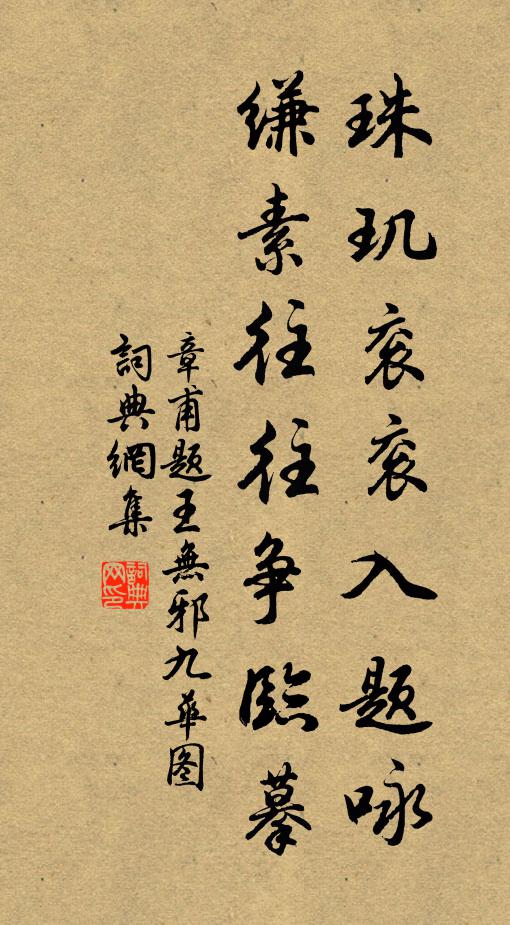 珠玑衮衮入题咏
缣素往往争臨摹
章甫题王無邪九華图
詞典網集
詞典网印